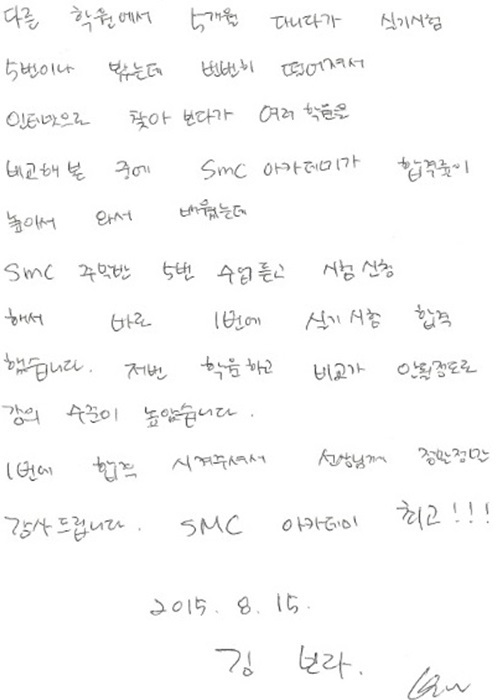 다른 학원에서 5개월 다니다가 실기시험
5번이나 봤는데 번번히 떨어져서
인터넷으로 찾아 보다가 여러 학원을
비교해 본 중에 SMC 아카데미가 합격률이
높아서 와서 배웠는데
SMC 주말반 5번 수업 듣고 시험 신청
해서 바로 1번에 실기 시험 합격
했습니다. 저번 학원하고 비교가 안될정도로
강의 수준이 높았습니다.
1번에 합격 시켜주셔서 선생님께 정말정말
감사드립니다. SMC 아카데미 최고!!!
2015. 8. 15.
김 보라.